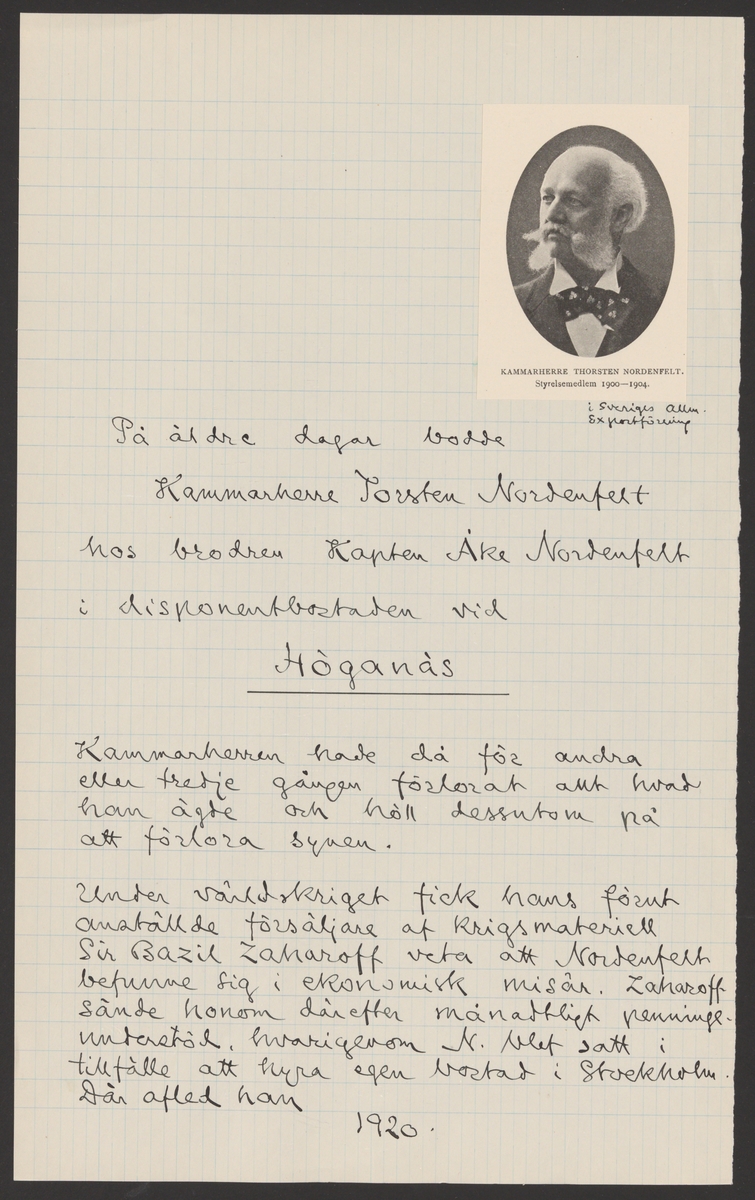 KAMMARHERRE THORSTEN NORDENFELT.
Styrelsemedlem 1900—1904.
i Sveriges Allm.
Exportförening
På äldre dagar bodde
Kammarherre Torsten Nordenfelt
hos brodren Kapten Åke Nordenfelt
i disponentbostaden vid
Höganäs
Kammarherren hade då för andra
eller tredje gången förlorat allt hvad
han ägde och höll dessutom på
att förlora synen.
Under världskriget fick hans förut
anställde försäljare af krigsmateriell
Sir Bazil Zaharoff veta att Nordenfelt
befunne sig i ekonomisk misär. Zaharoff
sände honom därefter månadtligt penninge-
understöd, hvarigenom N. blef satt i
tillfälle att hyra egen bostad i Stockholm.
Där afled han
1920.